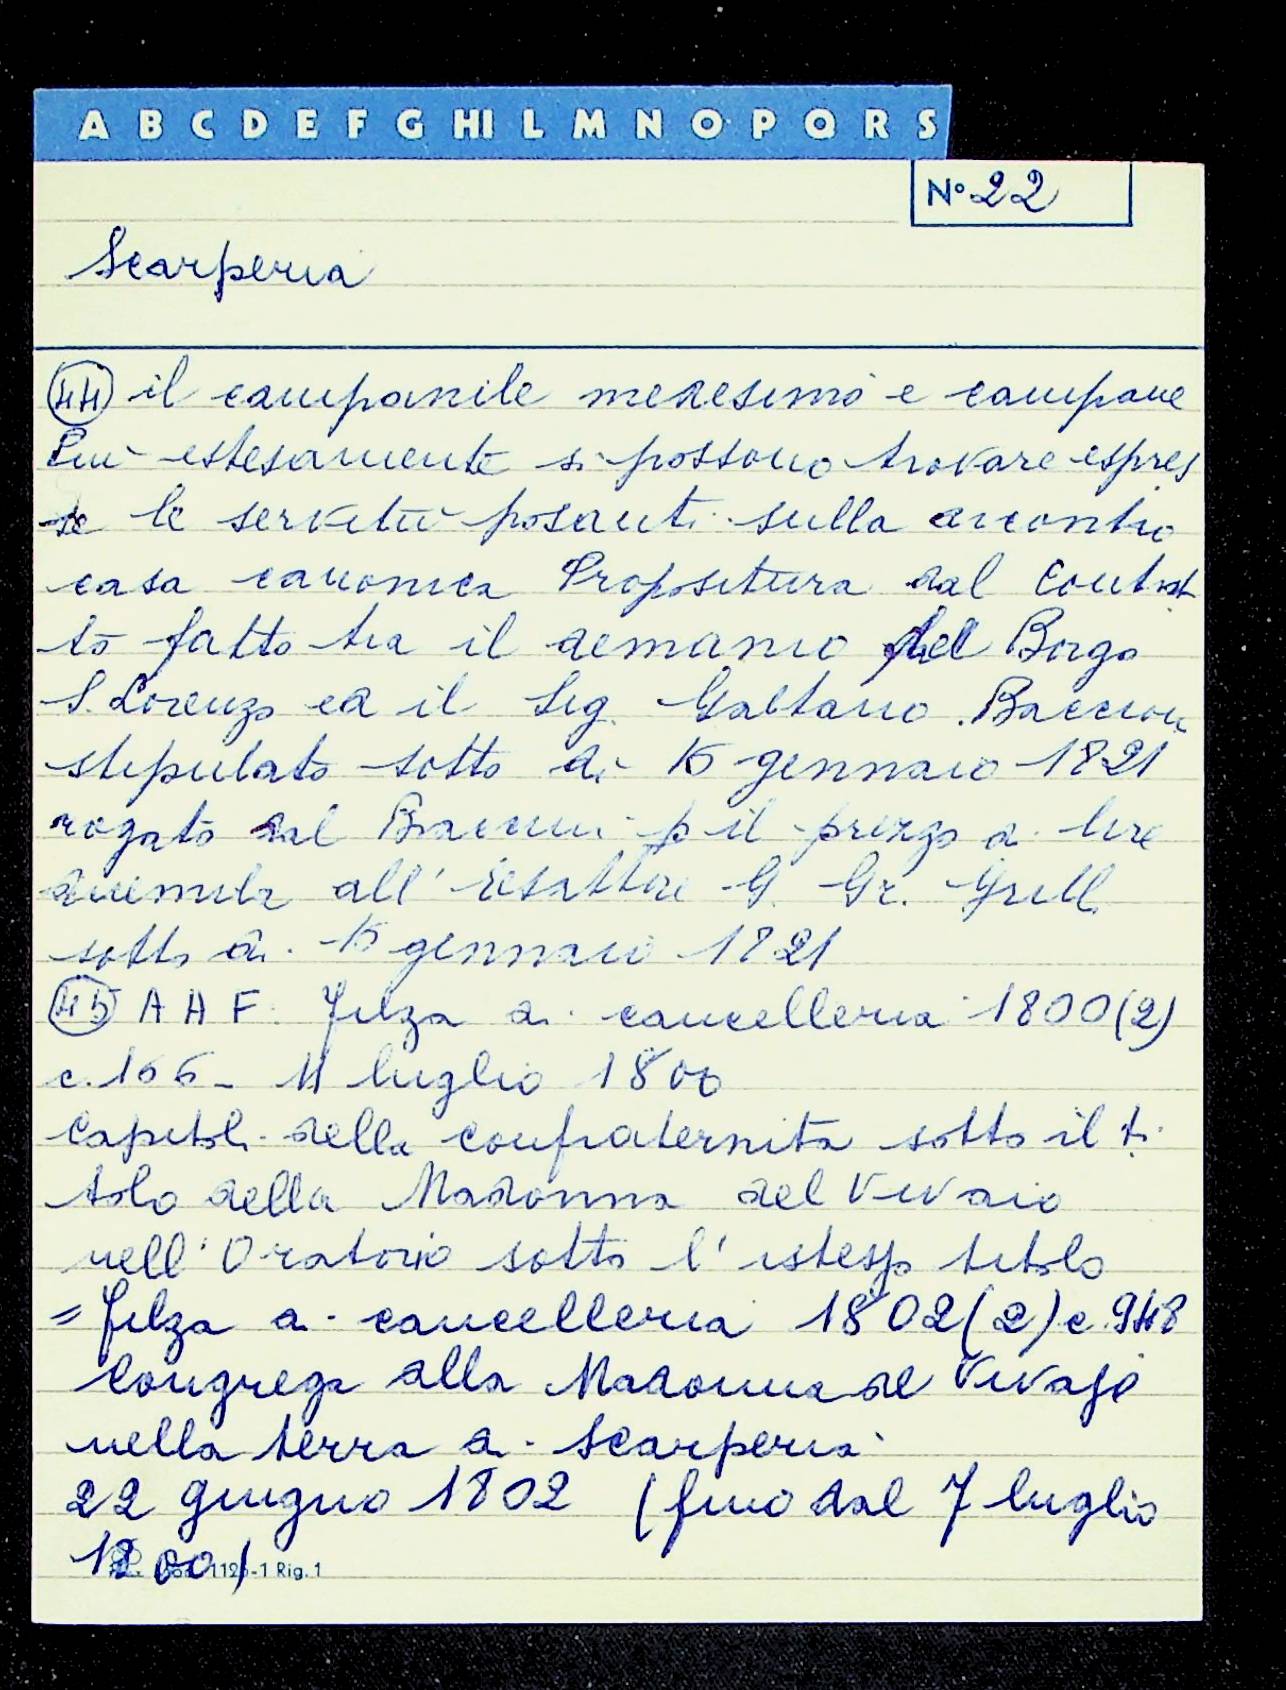 A B C D E F G HI L M N O P Q R S
N° 22
Scarperia
44 il campanile medesimo e campane
Piu estesamente si possono trovare espres
se le servitù posanti sulla
casa canonica Propositura dal Contrat
to fatto tra il demanio del Borgo
S. Lorenzo ed il Sig. Gaetano Baccion
stipulato sotto di 15 gennaio 1821
rogato dal p il prezzo di lire
duemila all' Esattore G. Gr. Grill
sotto di 15 gennaio 1821
45 A A F. Filza di cancelleria 1800(2)
c. 166 - 11 luglio 1800
Capitoli della confraternita sotto il ti
tolo della Madonna del Vivaio
nell' Oratorio sotto l' istesso titolo
= filza di cancelleria 1802(2) c. 948
Congrega alla Madonna del Vivajo
nella terra di Scarperia
22 giugno 1802 (fino dal 7 luglio
1800)
-1 Rig. 1